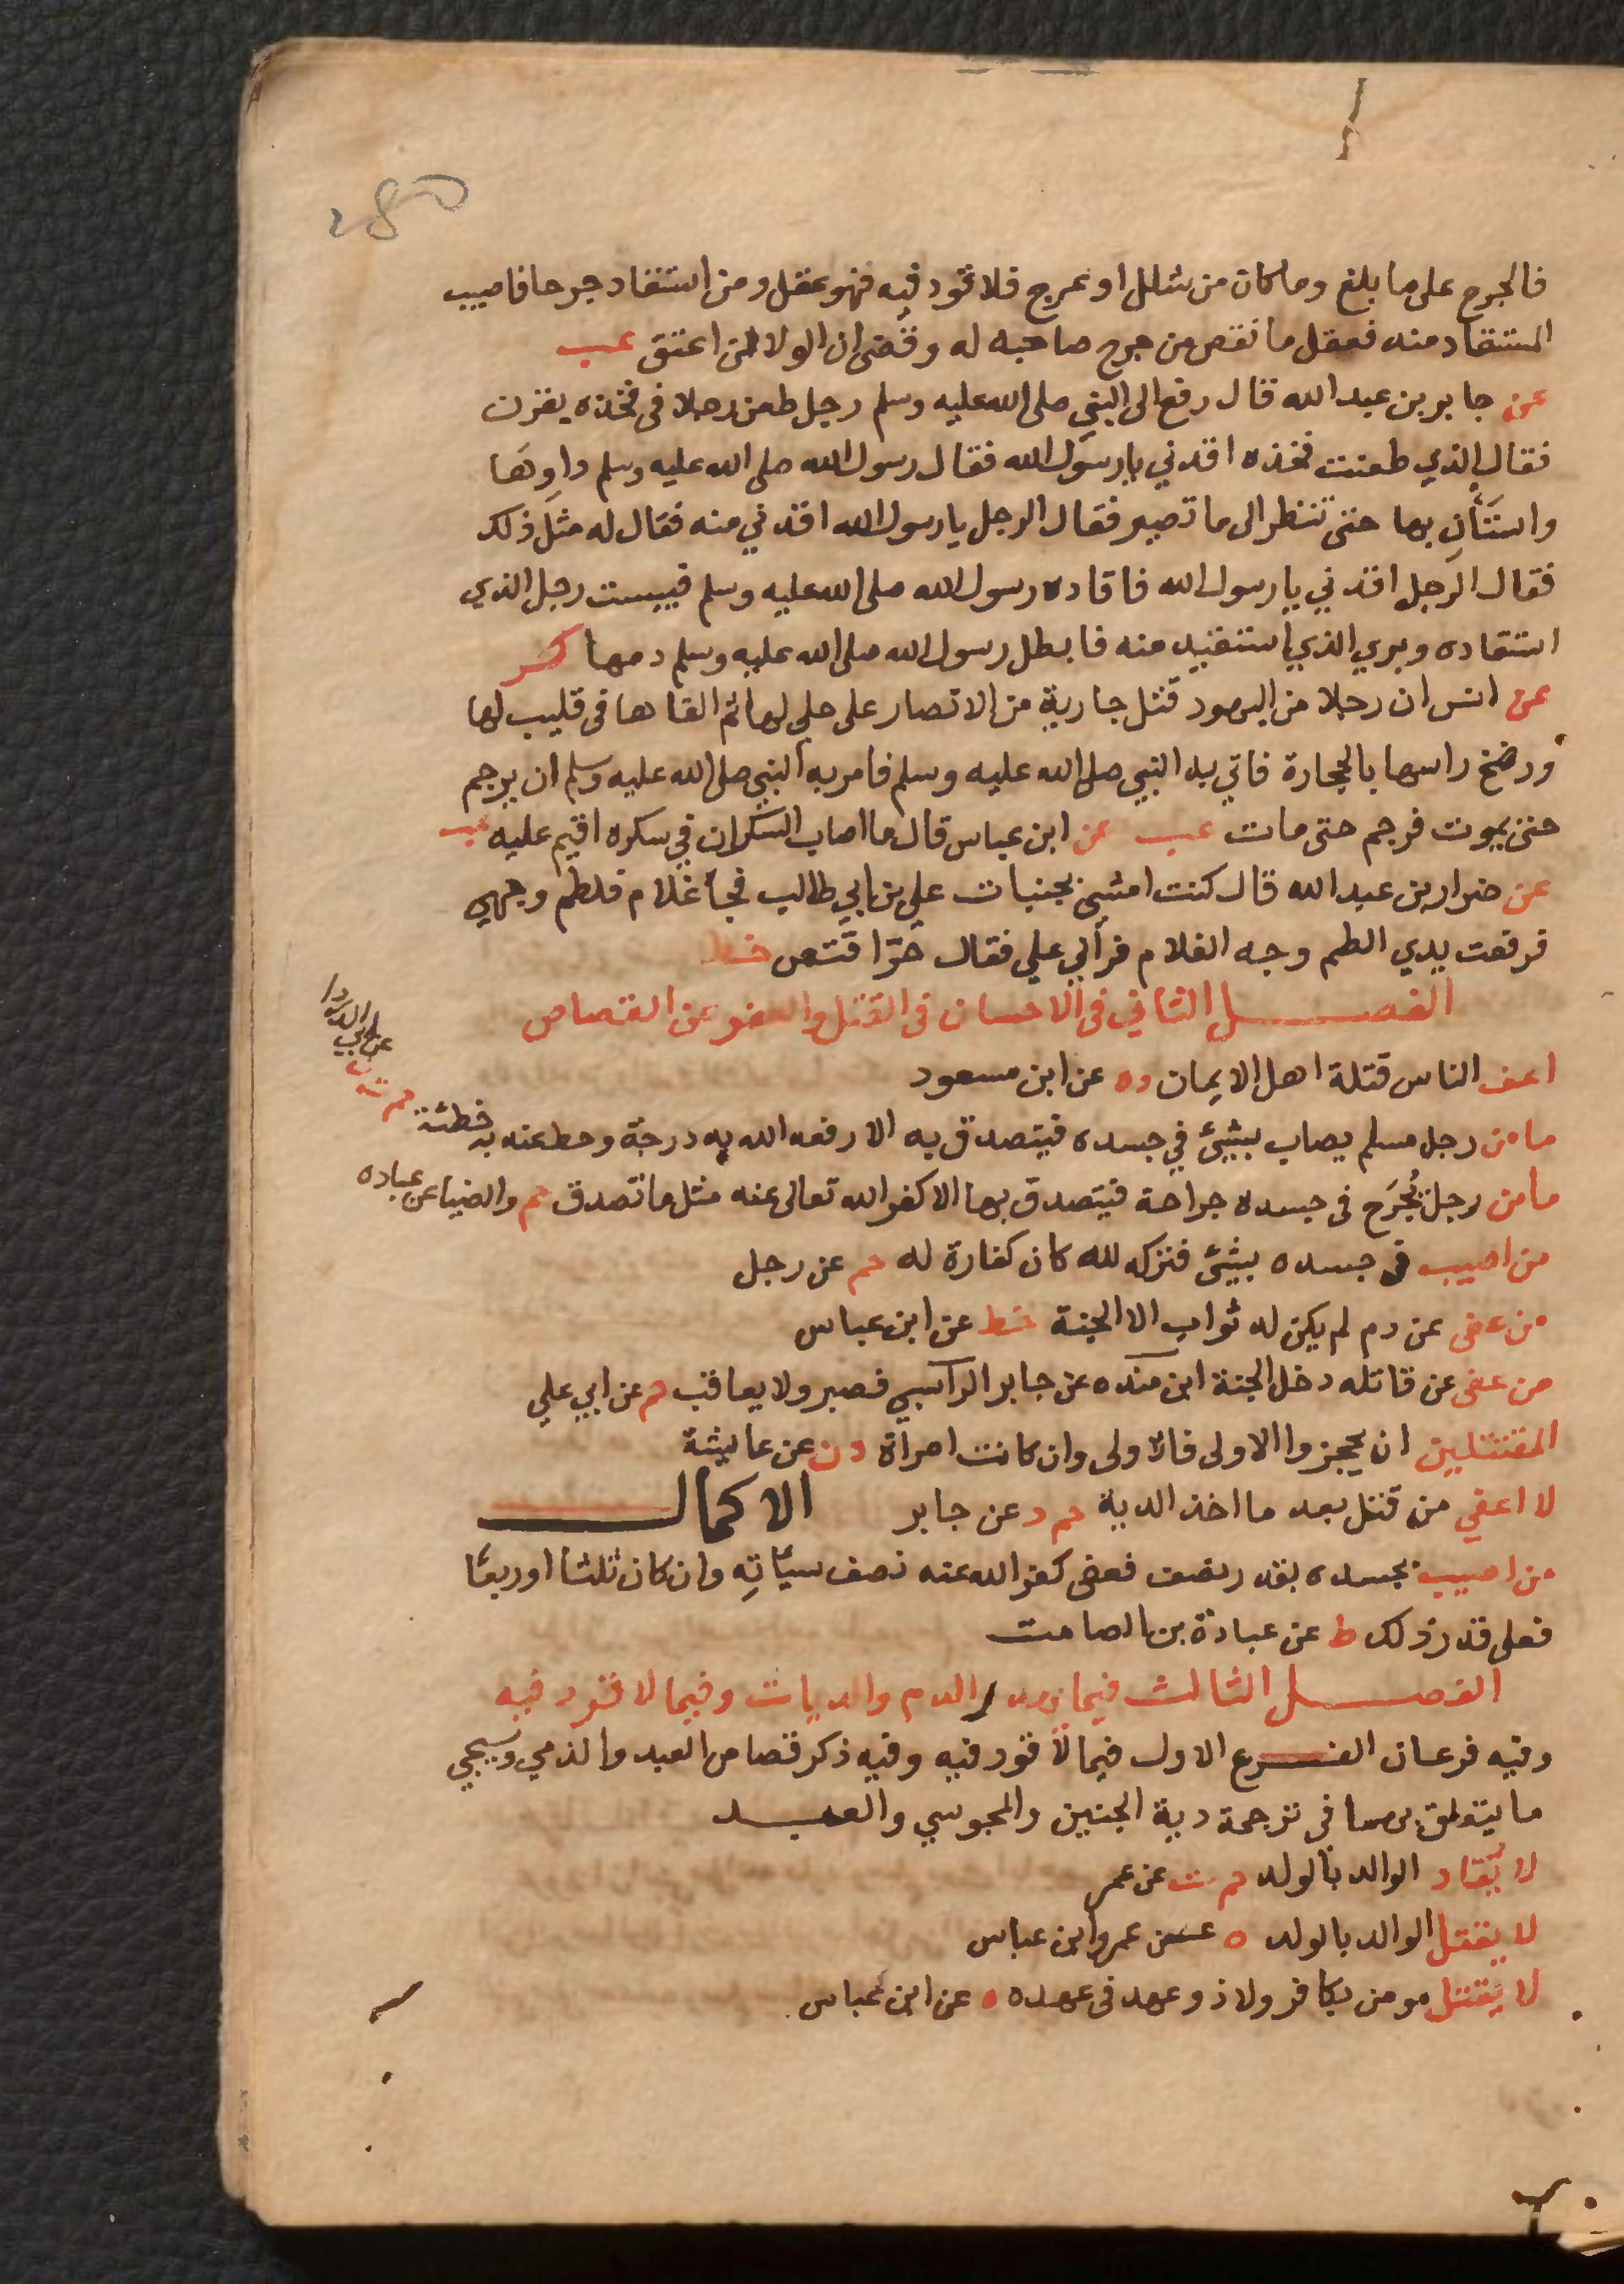 280
فالجرح على ما بلغ وما كان من شلل او عرج فلا قود فيه فهو عقل ومن استقاد جرحا فاصيب
المستقاد منه فعقل ما نقص من جرح صاحبه له وقضى ان الولا لمن اعتق عب
عن جابر بن عبد الله قال رفع الى النبي صلى الله عليه وسلم رجل طعن رجلا في فخذه بقرن
فقال الذي طعنت فخذه اقدني يا رسول الله فقال رسول الله صلى الله عليه وسلم داوِهَا
واستَأنِ بها حتى تنظر الى ما تصير فقال الرجل يا رسول الله اقدني منه فقال له مثل ذلك
فقال الرجل اقدني يا رسول الله فاقاده رسول الله صلى الله عليه وسلم فيبست رجل الذي
استقاده وبري الذي استقيد منه فابطل رسول الله صلى الله عليه وسلم دمها كر
عن انس ان رجلا من اليهود قتل جارية من الانصار على حلي لها ثم القاها في قليب لها
ورضخ راسها بالحجارة فاتي به النبي صلى الله عليه وسلم فامر به النبي صلى الله عليه وسلم ان يرجم
حتى يموت فرجم حتى مات عب عن ابن عباس قال ما اصاب السكران في سكره اقيم عليه عب
عن ضرار بن عبد الله قال كنت امشي بجنبات علي بن ابي طالب فجأ غلام فلطم وجهي
فرفعت يدي الطم وجه الغلام فرأني علي فقال حرّا قتص خط
الفصل الثاني في الاحسان في القتل والعفو عن القصاص
اعف الناس قتلة اهل الايمان ده عن ابن مسعود
ما من رجل مسلم يصاب بشيئ في جسده فيتصدق به الا رفعه الله به درجة وحط عنه به خطئة حم ت ه عن ابي الدردا
ما من رجل يُجرَح في جسده جراحة فيتصدق بها الا كفر الله تعالى عنه مثل ما تصدق حم والضيا عن عباده
من اصيب في جسده بشيئ فتركه لله كان كفارة له حم عن رجل
من عفى عن دم لم يكن له ثواب الا الجنة خط عن ابن عباس
من عفى عن قاتله دخل الجنة ابن منده عن جابر الراسبي فصبر ولا يعاقب حم عن ابي علي
المقتتلين ان يحجزوا الاولى فالاولى وان كانت امرأة دن عن عايشة
لا اعفي من قتل بعد ما اخذ الدية حم د عن جابر الاكمال
من اصيب بجسده بقدر نصف فعفى كفر الله عنه نصف سيأتِه وان كان ثلثا اوربعًا
فعلى قدر ذلك ط عن عبادة بن الصامت
الفصل الثالث فيما يهدر الدم والديات وفيما لا قود فيه
وفيه فرعان الفرع الاول فيما لا قود فيه وفيه ذكر قصاص العبد والذمي وسيجي
ما يتعلق بهما في ترجمة دية الجنين والمجوسي والعبد
لا يُقاد الوالد بالولد حم ت عن عمر
لا يقتل الوالد بالولد ه عن عمر وابن عباس
لا يُقتل مومن بكافر ولا ذو عهد في عهده ه عن ابن عباس